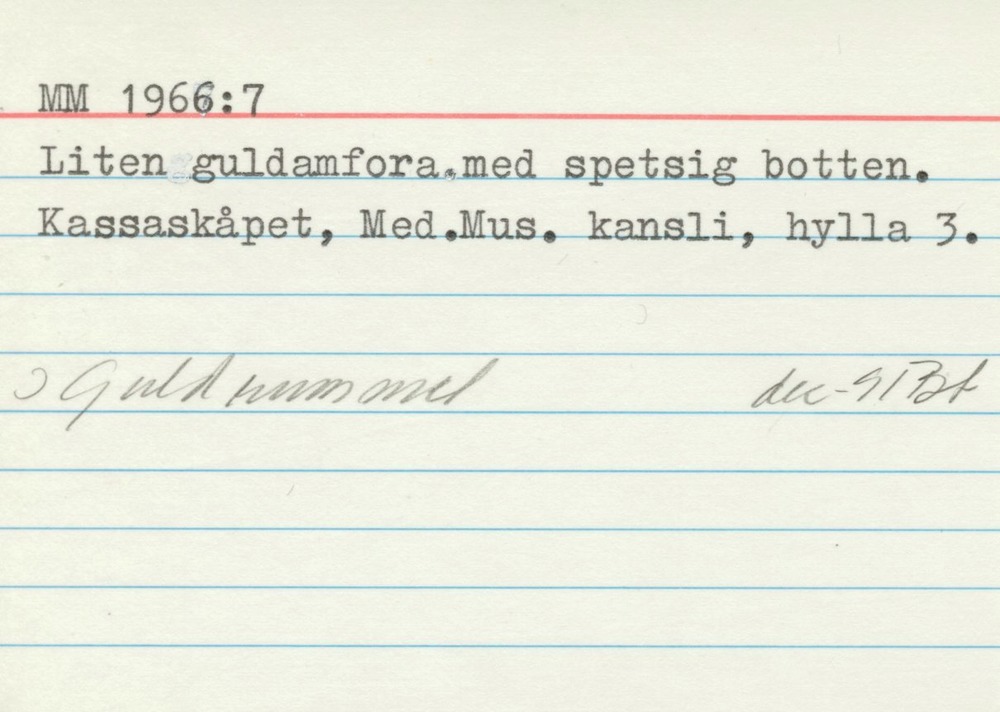 MM 1966:7
Liten guldamfora.med spetsig botten.
Kassaskåpet, Med.Mus. kansli, hylla 3.
Guldrummet dec-91 Bt